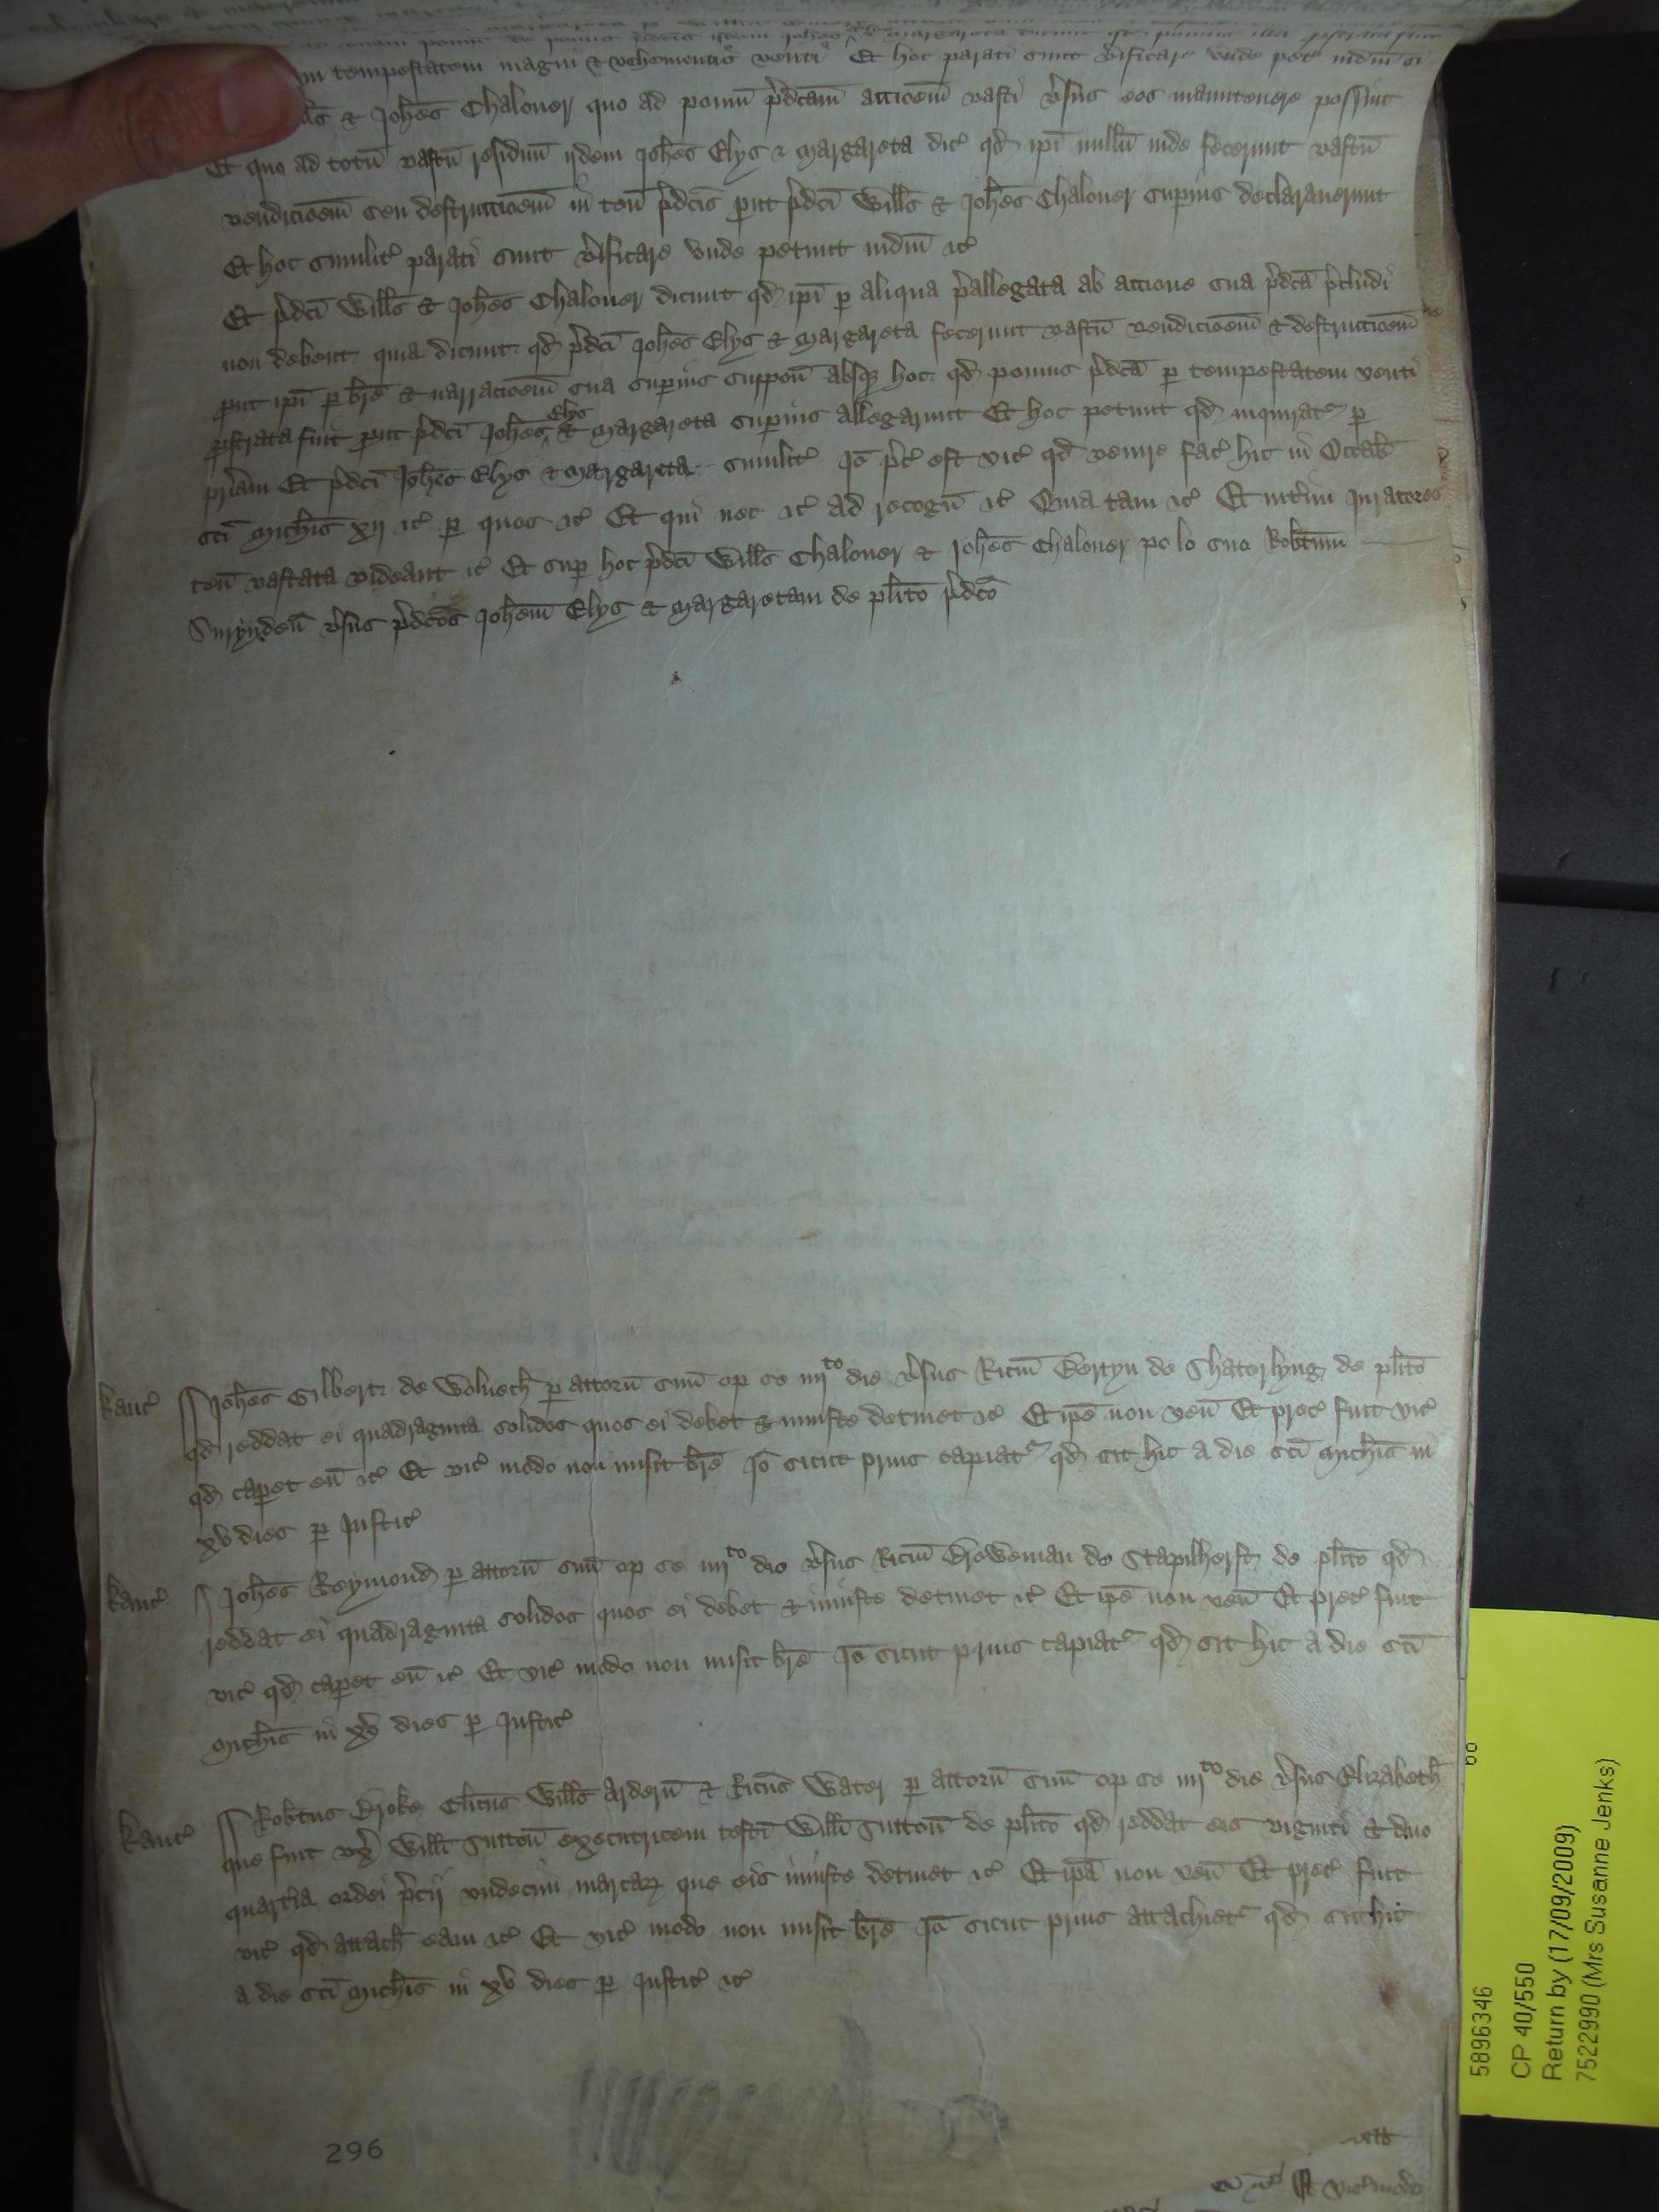 tempestatem magni & vehementis venti Et hoc parati sunt v̄ificare unde pet̄ iudiū si
& Joh̄es Chaloner quo ad pomū p̄dc̄am acc̄ioēm vasti v̄sus eos manutenere possint
Et quo ad totū vastū residuū ijdem Joh̄es Elys & Margareta dic̄ qd̄ ip̄i nullū inde fecerunt vastū
vendicioēm seu destruccioēm in ten̄ p̄dc̄is put p̄dc̄i Will̄s & Joh̄es Chaloner sup̄ius declaraverunt
Et hoc similit̄ parati sunt v̄ificare unde petunt iudiū ic̄
Et p̄dc̄i Will̄s & Joh̄es Chaloner dicunt qd̄ ip̄i p aliqua p̄allegata ab accione sua p̄dc̄a p̄cludi
non debent quia dicunt qd̄ p̄dc̄i Joh̄es Elys & Margareta fecerunt vastū vendicioēm & destruccioēm
put ip̄i p br̄e & narracioēm sua sup̄ius suppon̄ absq̄ hoc qd̄ pomus p̄dc̄a p tempestatem venti
pstrata fuit put p̄dc̄i Joh̄es Elys & Margareta sup̄ius allegarunt Et hoc petunt qd̄ inquirat̄ p
pr̄iam Et p̄dc̄i Joh̄es Elys & Margareta similit̄ Iō p̄c̄ est vic̄ qd̄ venire fac̄ hic in Octab̄
sc̄i Mich̄is xij ic̄ p quos ic̄ Et qui nec ic̄ ad recogn̄ ic̄ Quia tam ic̄ Et int̄im Juratores
ten̄ vastata videant ic̄ Et sup hoc p̄dc̄i Will̄s Chaloner & Joh̄es Chaloner po lo suo Rob̄tum
Surynden̄ v̄sus p̄dc̄os Joh̄em Elys & Margaretam de pl̄ito p̄dc̄o
Kanc̄ Joh̄es Gilbert de Wolwech̄ p attorn̄ suū op se iiij to die v̄sus Ric̄m de Shaterlyng de pl̄ito
qd̄ reddat ei quadraginta solidos quos ei debet & iniuste detinet ic̄ Et ip̄e non ven̄ Et prec̄ fuit vic̄
qd̄ cap̄et eū ic̄ Et vic̄ modo non misit br̄e Iō sicut prius capiat̄ qd̄ sit hic a die sc̄i Mich̄is in
xv dies p Justic̄
Kanc̄ Joh̄es Reymond̄ p attorn̄ suū op se iiij to die v̄sus Ric̄m Broweman de Stapilherst de pl̄ito qd̄
reddat ei quadraginta solidos quos ei debet & iniuste detinet ic̄ Et ip̄e non ven̄ Et prec̄ fuit
vic̄ qd̄ cap̄et eū ic̄ Et vic̄ modo non misit br̄e Iō sicut prius capiat̄ qd̄ sit hic a die sc̄i
Mich̄is in xv dies p Justic̄
Kanc̄ Rob̄tus Broke Cl̄icus Will̄s Ardern̄ & Ric̄us Water p attorn̄ suū op se iiij to die v̄sus Elizabeth̄
que fuit ux̄ Will̄i Sutton̄ executricem test̄i Will̄i Sutton̄ de pl̄ito qd̄ reddat eis viginti & duo
quart̄ia ordei p̄cij undecim marcaꝝ que eis iniuste detinet ic̄ Et ip̄a non ven̄ Et prec̄ fuit
vic̄ qd̄ attach̄ eam ic̄ Et vic̄ modo non misit br̄e Iō sicut prius attachiet̄ qd̄ sit hic
a die sc̄i Mich̄is in xv dies p Justic̄ ic̄
296
Et vic̄ modo
5896346
CP 40/550
Return by (17/09/2009)
7522990 (Mrs Susanne Jenks)